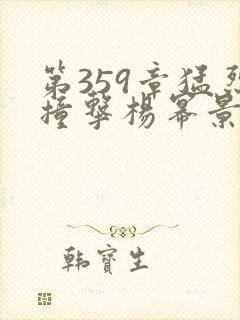 第359章猛烈
撞撃楊幂景
韩寶生